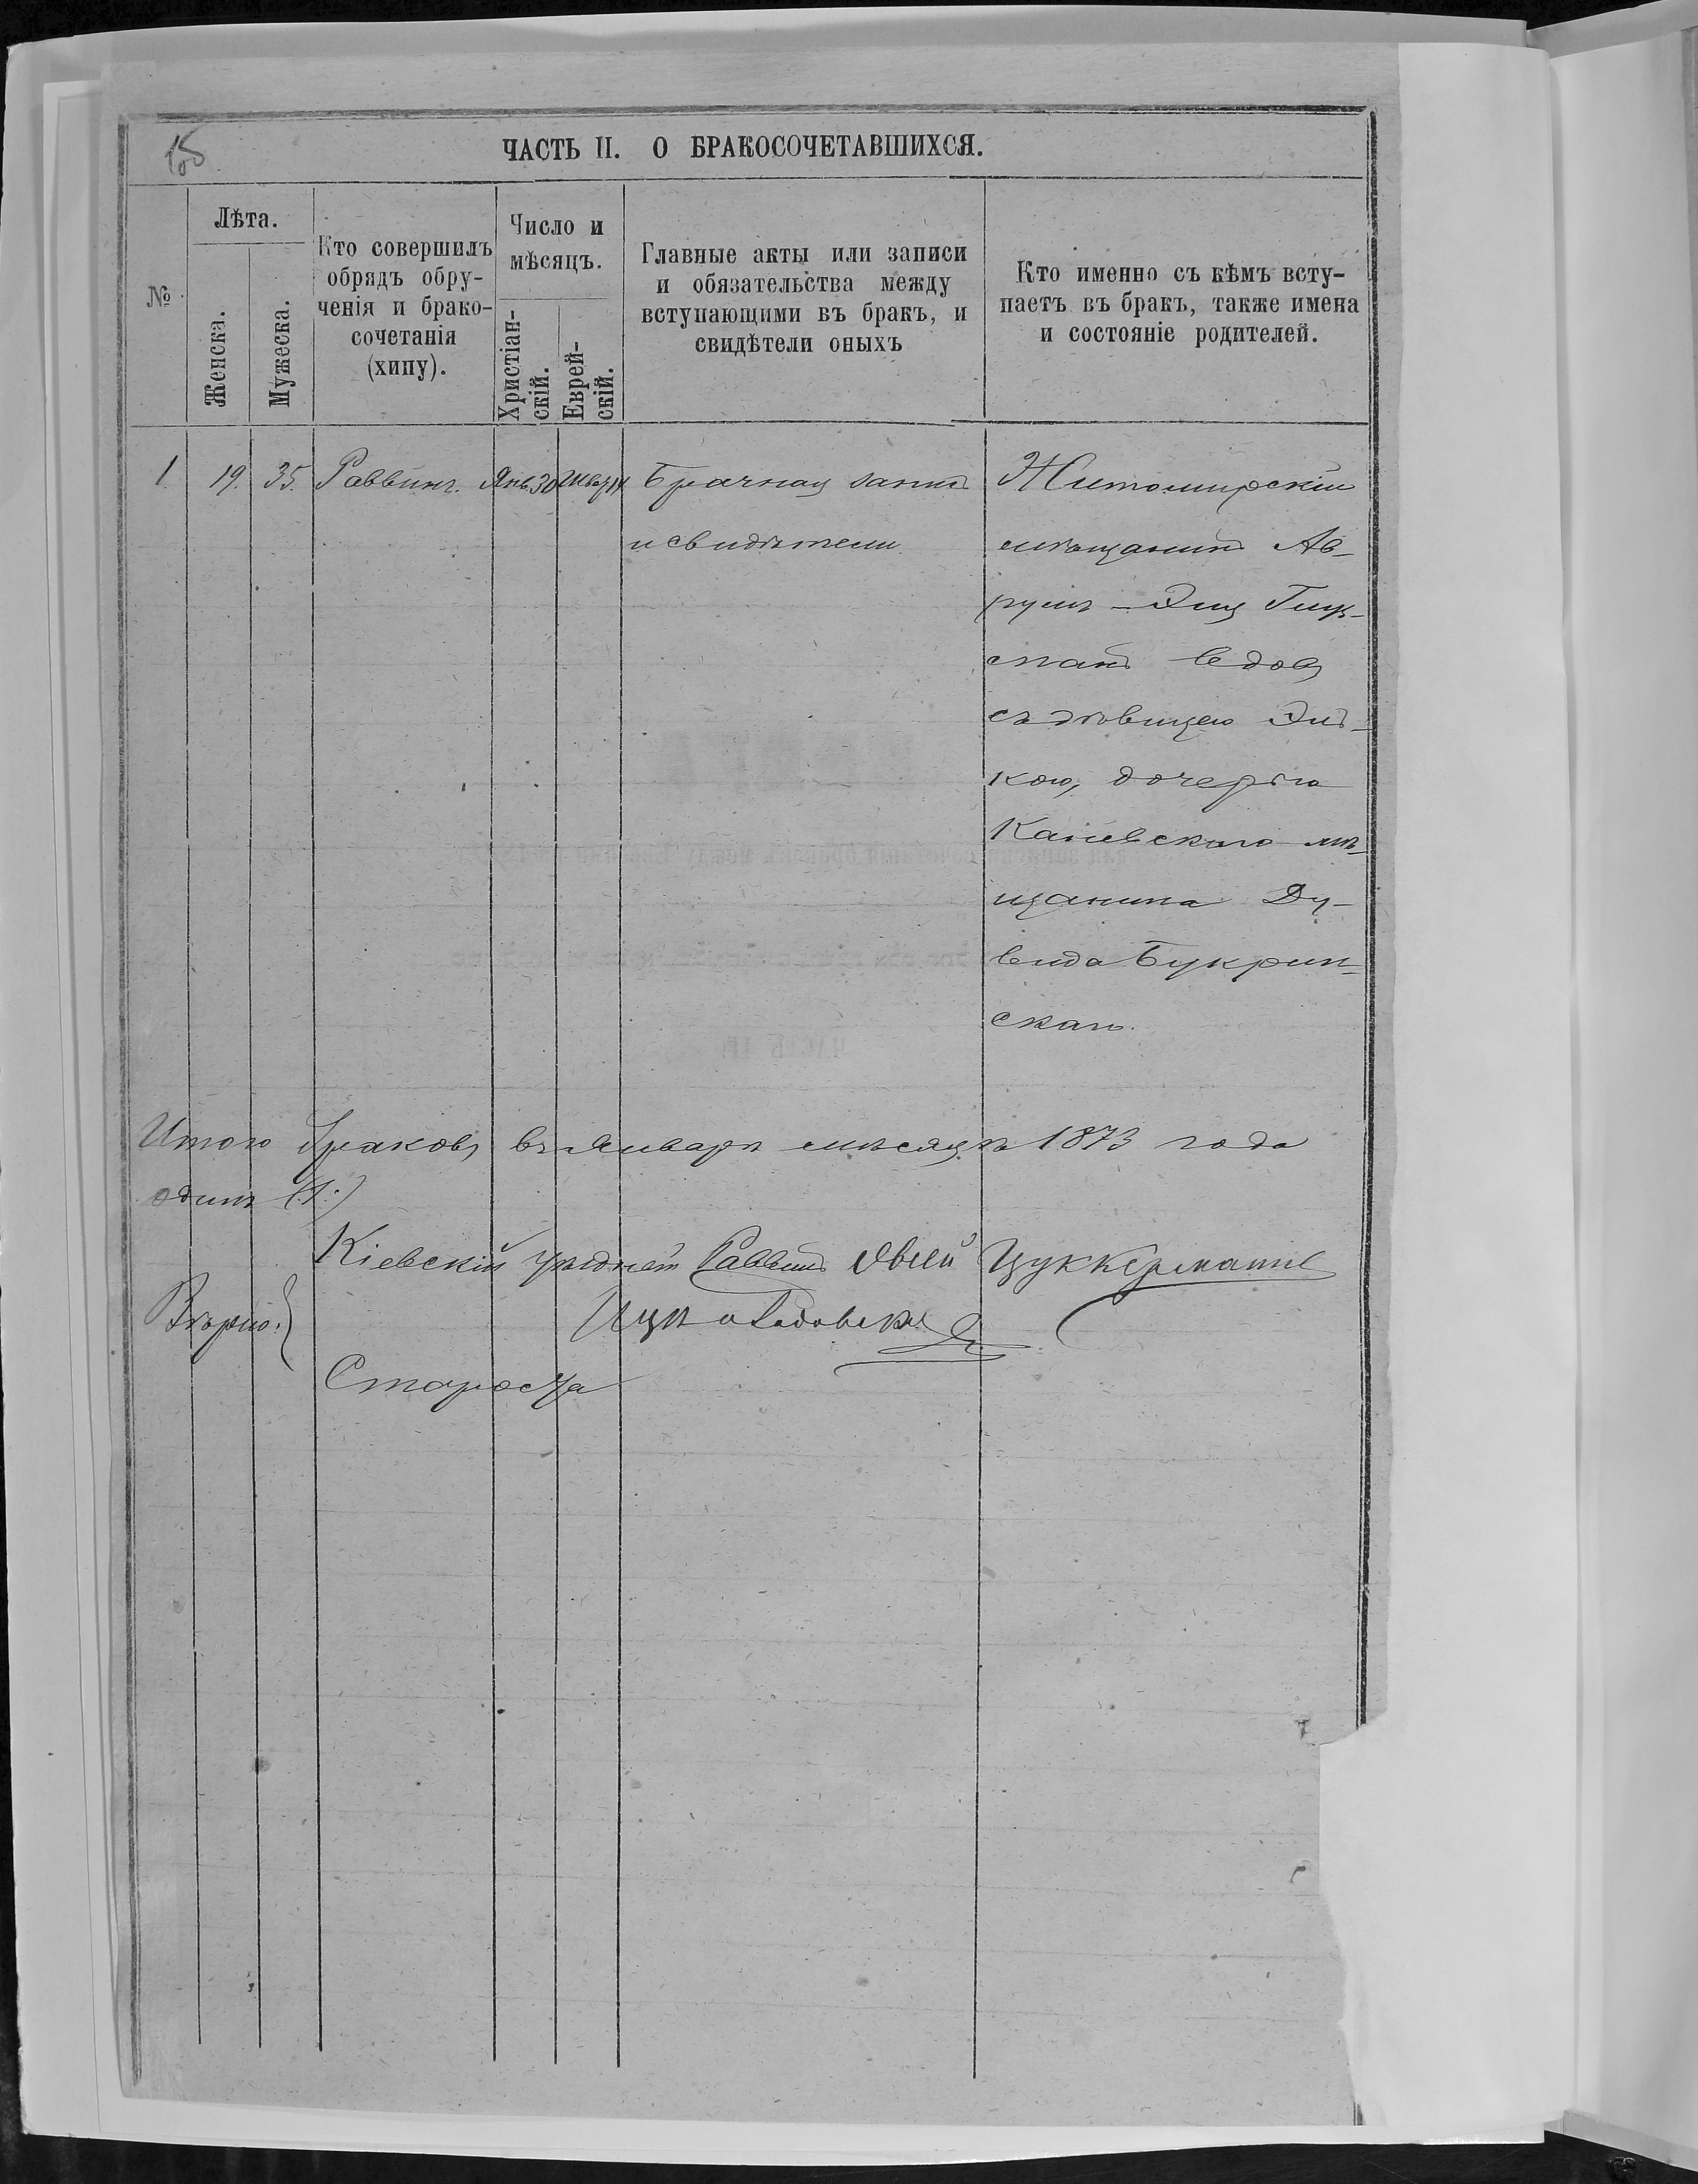 ЧАСТЬ II. О БРАКОСОЧЕТАВШИХСЯ.
№
Лѣта.
Женска.
Мужеска.
Кто совершилъ
обрядъ обру-
ченія и брако-
сочетанія
(хипу).
Число и
мѣсяцъ.
Христіан-
скій.
Еврей-
скій.
Главные акты или записи
и обязательства между
вступающими въ бракъ, и
свидѣтели оныхъ
Кто именно съ кѣмъ всту-
паетъ въ бракъ, также имена
и состояніе родителей.
1 19. 35. Раввинъ. Янв. 30 14 Брачная запись
и свидѣтели
Житомирскій
мѣщанинъ Ав-
румъ-
вдовъ
съ дѣвицею
кою, дочерью
Каневскаго мѣ-
щанина Ду-
вида Букрин-
скаго.
Итого браковъ въ Январѣ мѣсяцѣ 1873 года
одинъ (1.)
Кіевскій уѣздный Раввинъ Цуккерманъ
Вѣрно:
Староста